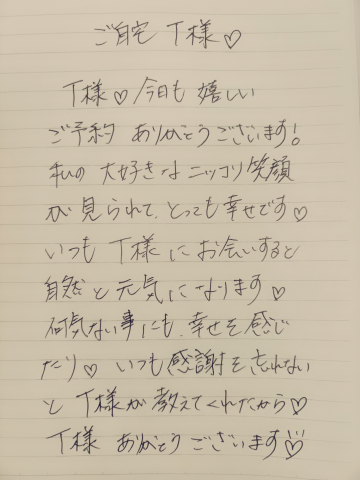 ご自宅 T様♡
T様♡今日も 嬉しい
ご予約 ありがとうございます!
私の 大好きな ニッコリ笑顔
が 見られて、とっても 幸せです♡
いつも T様に お会いすると
自然と 元気になります♡
何気ない事にも、幸せを感じ
たり♡ いつも感謝を忘れない
と T様が 教えてくれたから♡
T様 ありがとう ございます♡